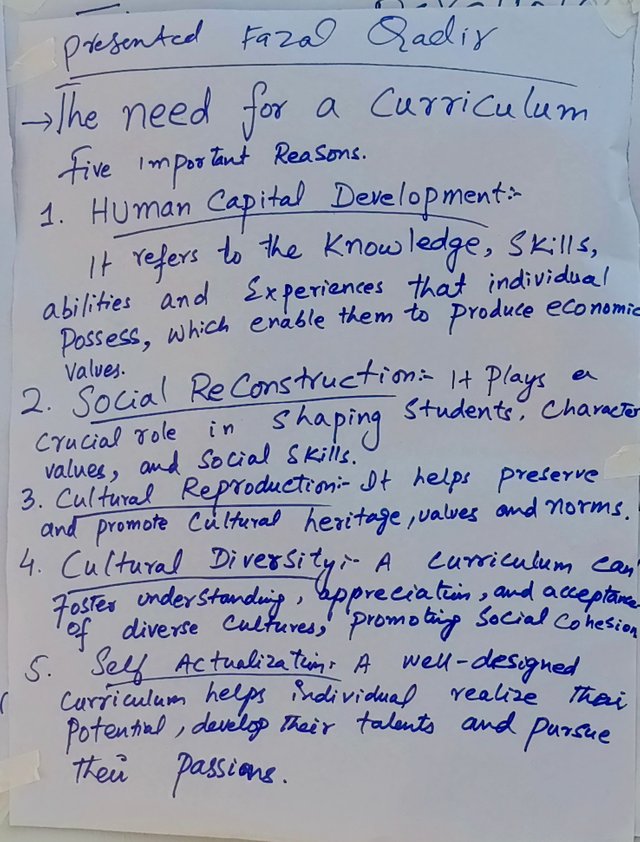 Presented Fazal Qadir
→ The need for a Curriculum
Five Important Reasons.
1. Human Capital Development:-
It refers to the Knowledge, Skills,
abilities and Experiences that individual
Possess, which enable them to produce economic
values.
2. Social ReConstruction:- It Plays a
crucial role in shaping Students, Character
values, and Social Skills.
3. Cultural Reproduction:- It helps preserve
and promote Cultural heritage, values and norms.
4. Cultural Diversity:- A curriculum can
Foster understanding, appreciation, and acceptance
of diverse cultures, promoting Social Cohesion
5. Self Actualization: A well-designed
Curriculum helps individual realize their
Potential, develop their talents and pursue
their passions.